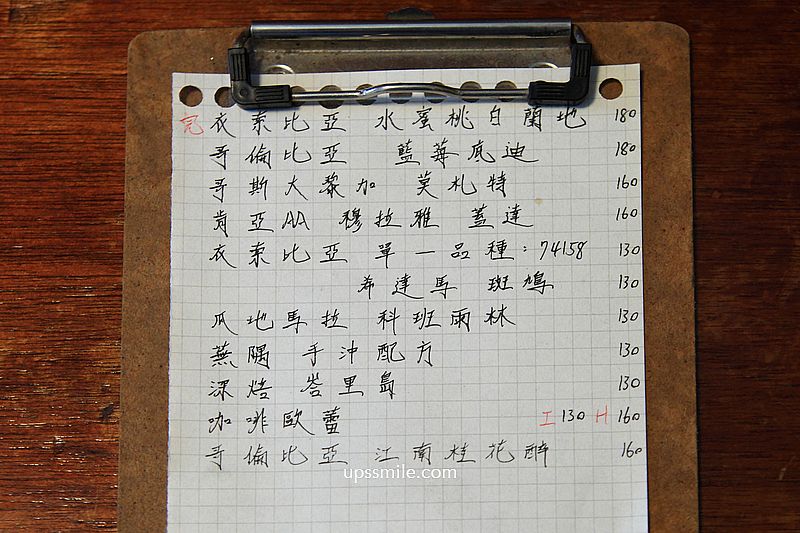 完 衣索比亞 水蜜桃白蘭地 180
哥倫比亞 藍莓底迪 180
哥斯大黎加 莫札特 160
肯亞AA 穆拉雅 蓋達 160
衣索比亞 單一品種:74158 130
希達馬 斑鳩 130
瓜地馬拉 科班雨林 130
蕪隅 手沖配方 130
深焙 峇里島 130
咖啡歐蕾 I 130 H 160
哥倫比亞 江南桂花醉 160
upssmile.com